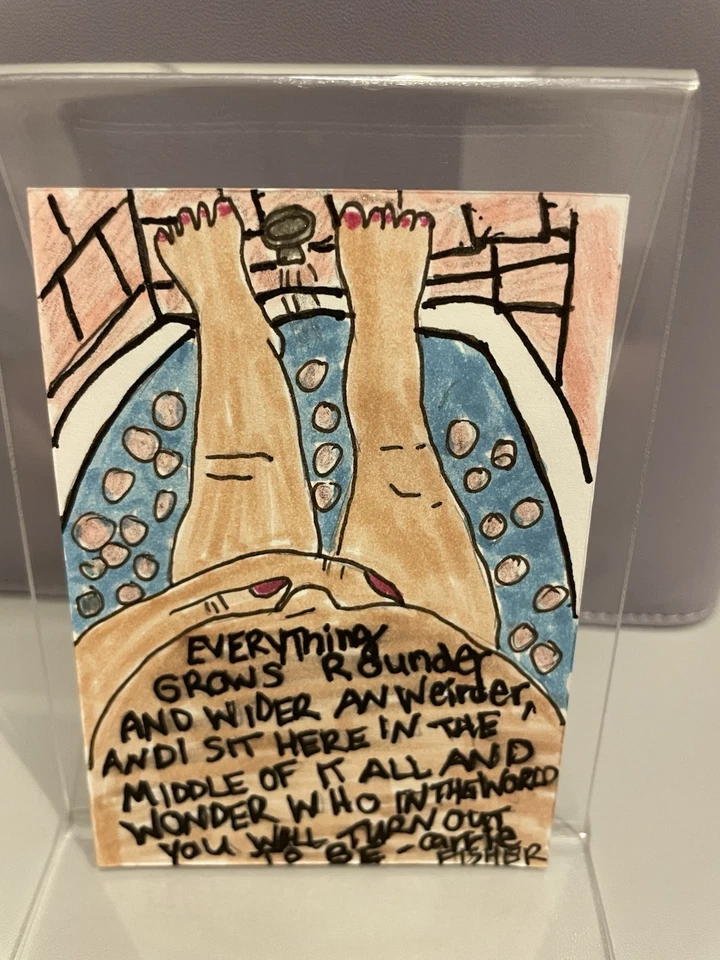 EVERYthing
GROWS ROunder
AND WIDER AN Weirder,
AND I SIT HERE IN THE
MIDDLE OF IT ALL AND
WONDER WHO IN THE WORLD
YOU WILL TURN OUT
TO BE - carrie
FISHER